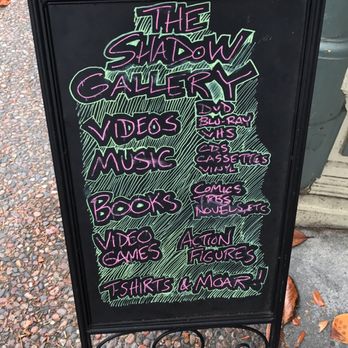 THE
SHADOW
GALLERY
VIDEOS
DVD
BLU-RAY
VHS
MUSIC
CDS
CASSETTES
VINYL
BOOKS
COMICS
TPBS
NOVELS, ETC
VIDEO
GAMES
ACTION
FIGURES
T-SHIRTS & MOAR!